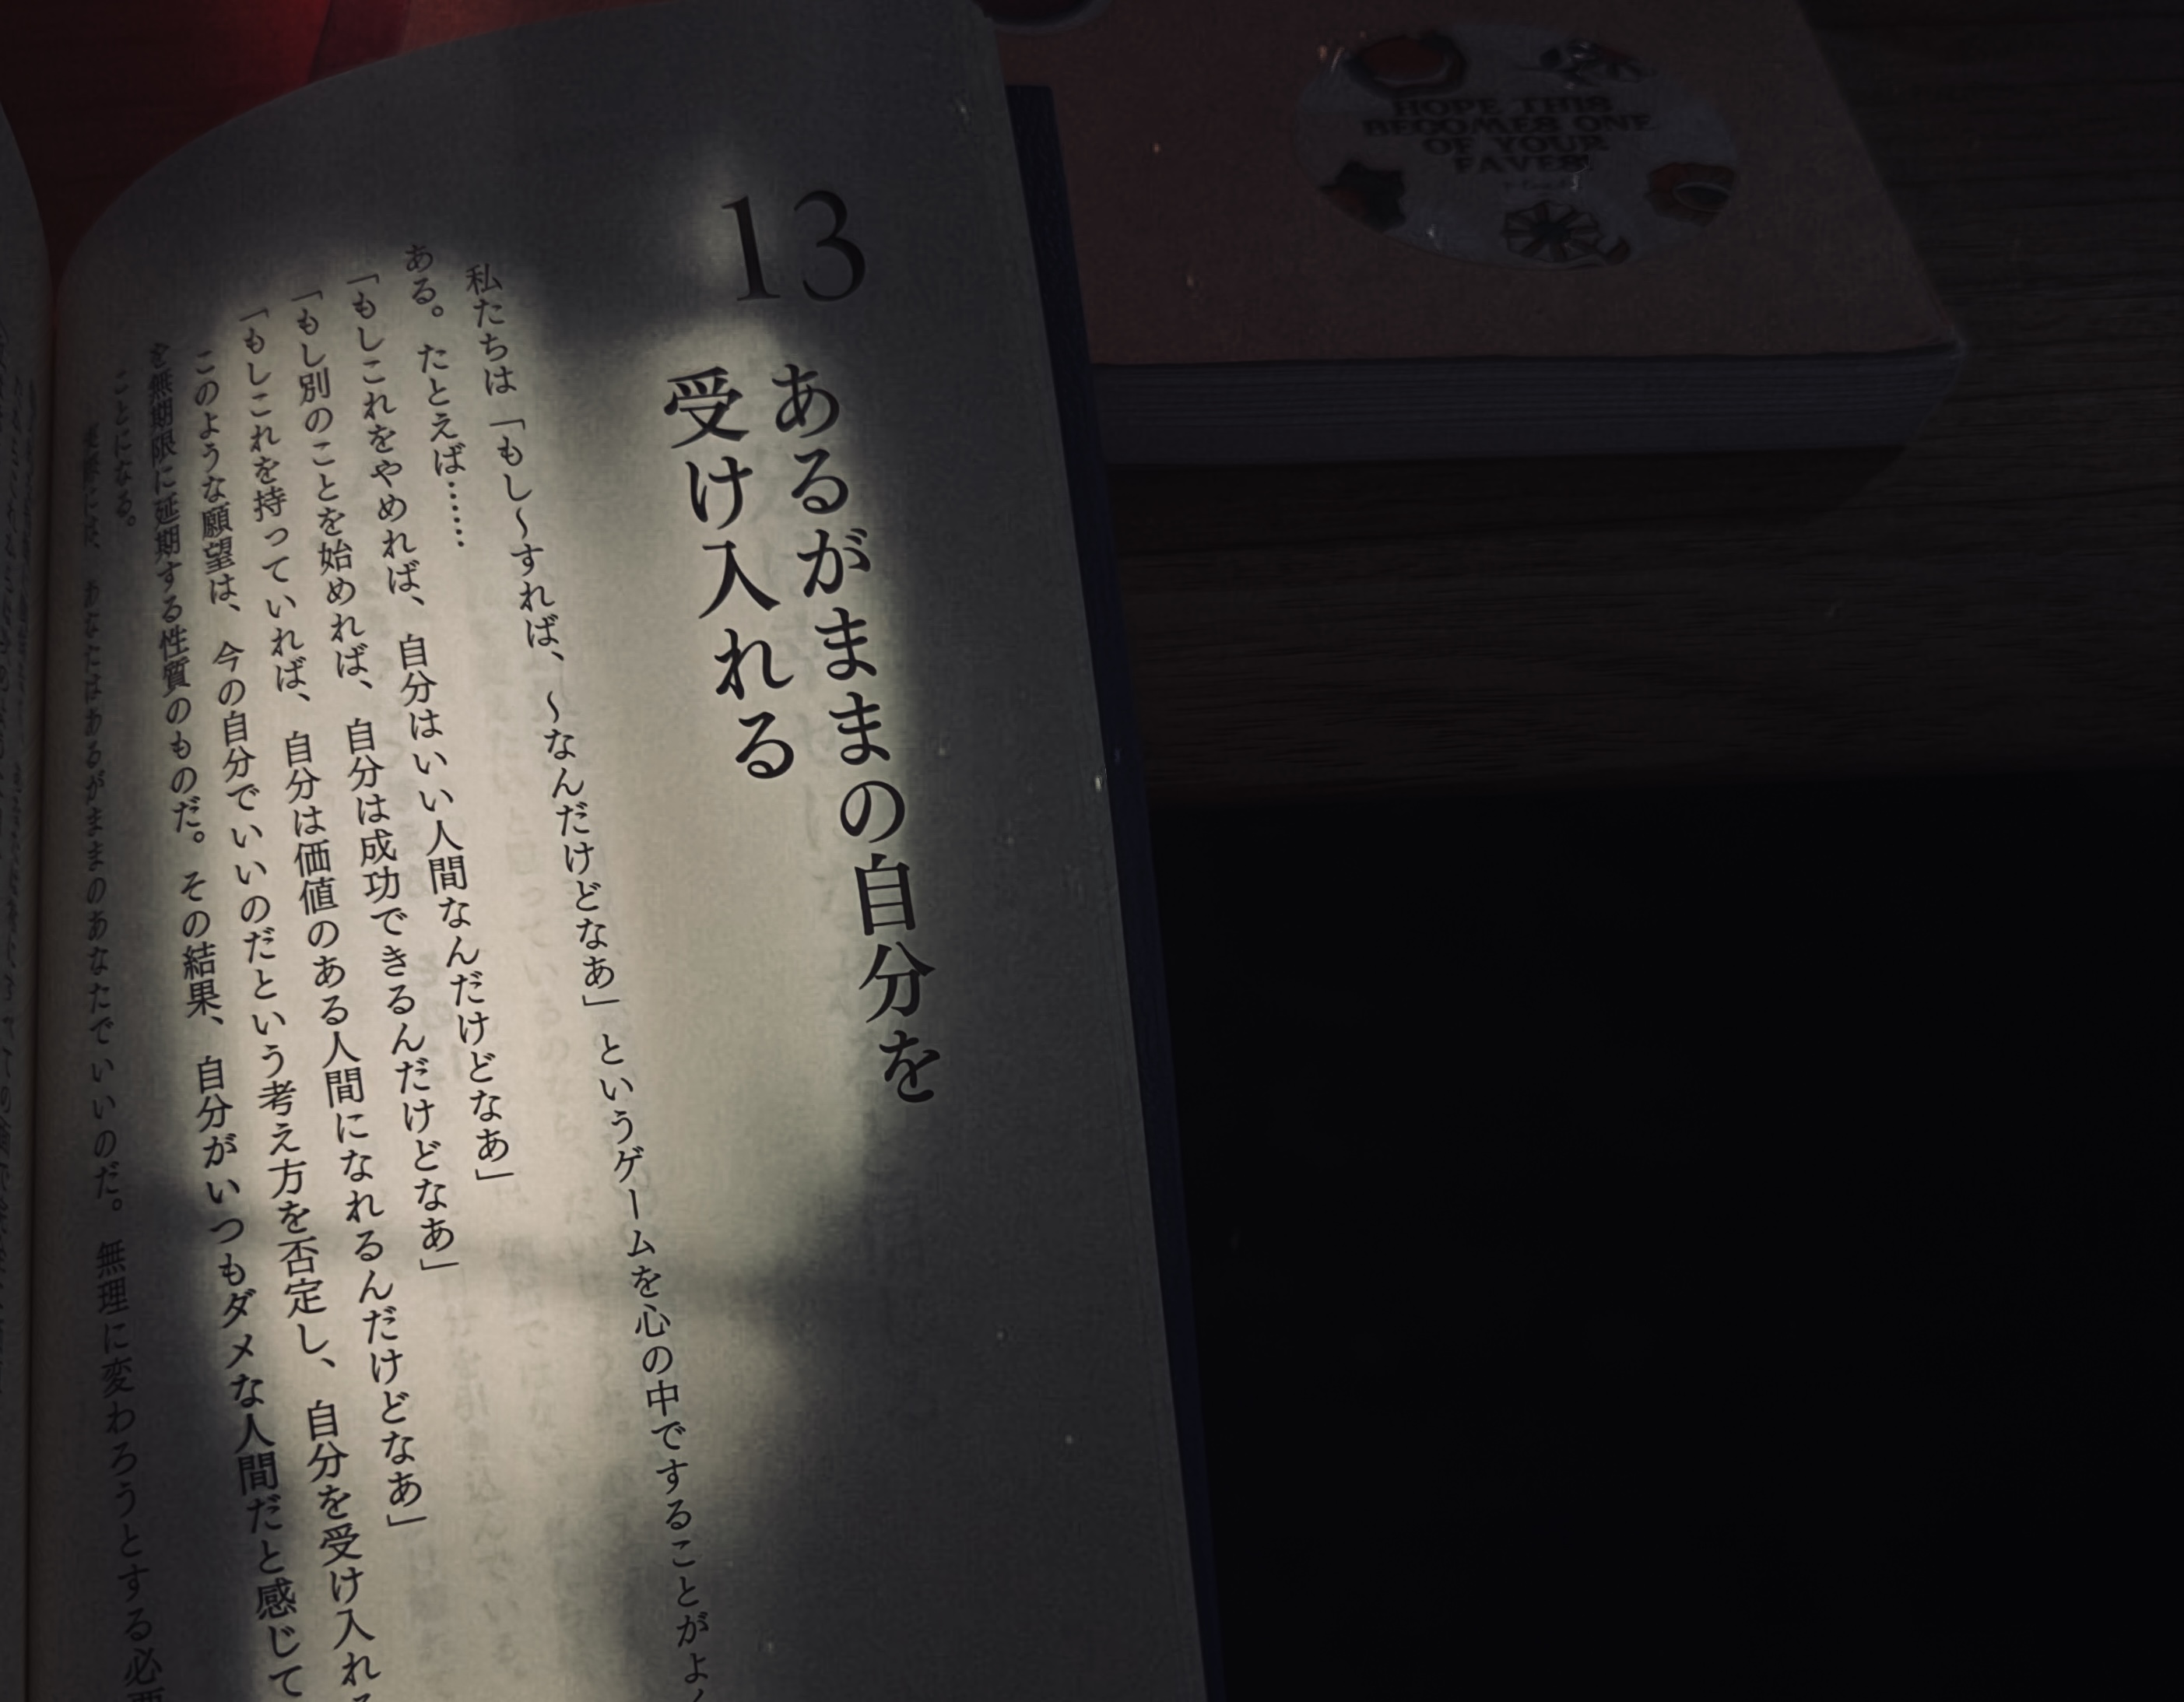 13
あるがままの自分を
受け入れる
私たちは「もし〜すれば、〜なんだけどなあ」というゲームを心の中ですることがよく
ある。たとえば……
「もしこれをやめれば、自分はいい人間なんだけどなあ」
「もし別のことを始めれば、自分は成功できるんだけどなあ」
「もしこれを持っていれば、自分は価値のある人間になれるんだけどなあ」
このような願望は、今の自分でいいのだという考え方を否定し、自分を受け入れる
を無期限に延期する性質のものだ。その結果、自分がいつもダメな人間だと感じて
ことになる。
実際には、あなたはあるがままのあなたでいいのだ。無理に変わろうとする必要
HOPE THIS
BECOMES ONE
OF YOUR
FAVES!